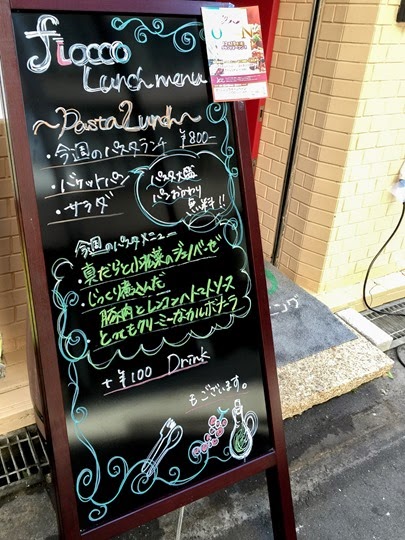 fiocco
Lunch menu
~Pasta Lunch~
・今週のパスタランチ ¥800-
・バケットパン
・サラダ
パスタ大盛
パンおかわり
無料!!
今週のパスタメニュー
・真だらと小松菜のジェノベーゼ
・じっくり煮込んだ
豚肉とレンコンのトマトソース
・とってもクリーミーなカルボナーラ
+¥100 Drink
もございます。